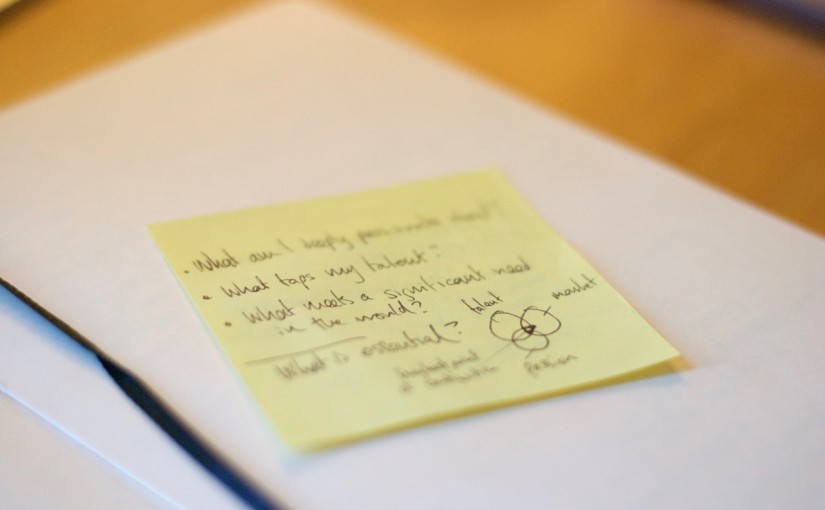 • What am I deeply passionate about?
• What taps my talent?
• What meets a significant need
in the world?
talent
market
What is essential?
point
of
passion